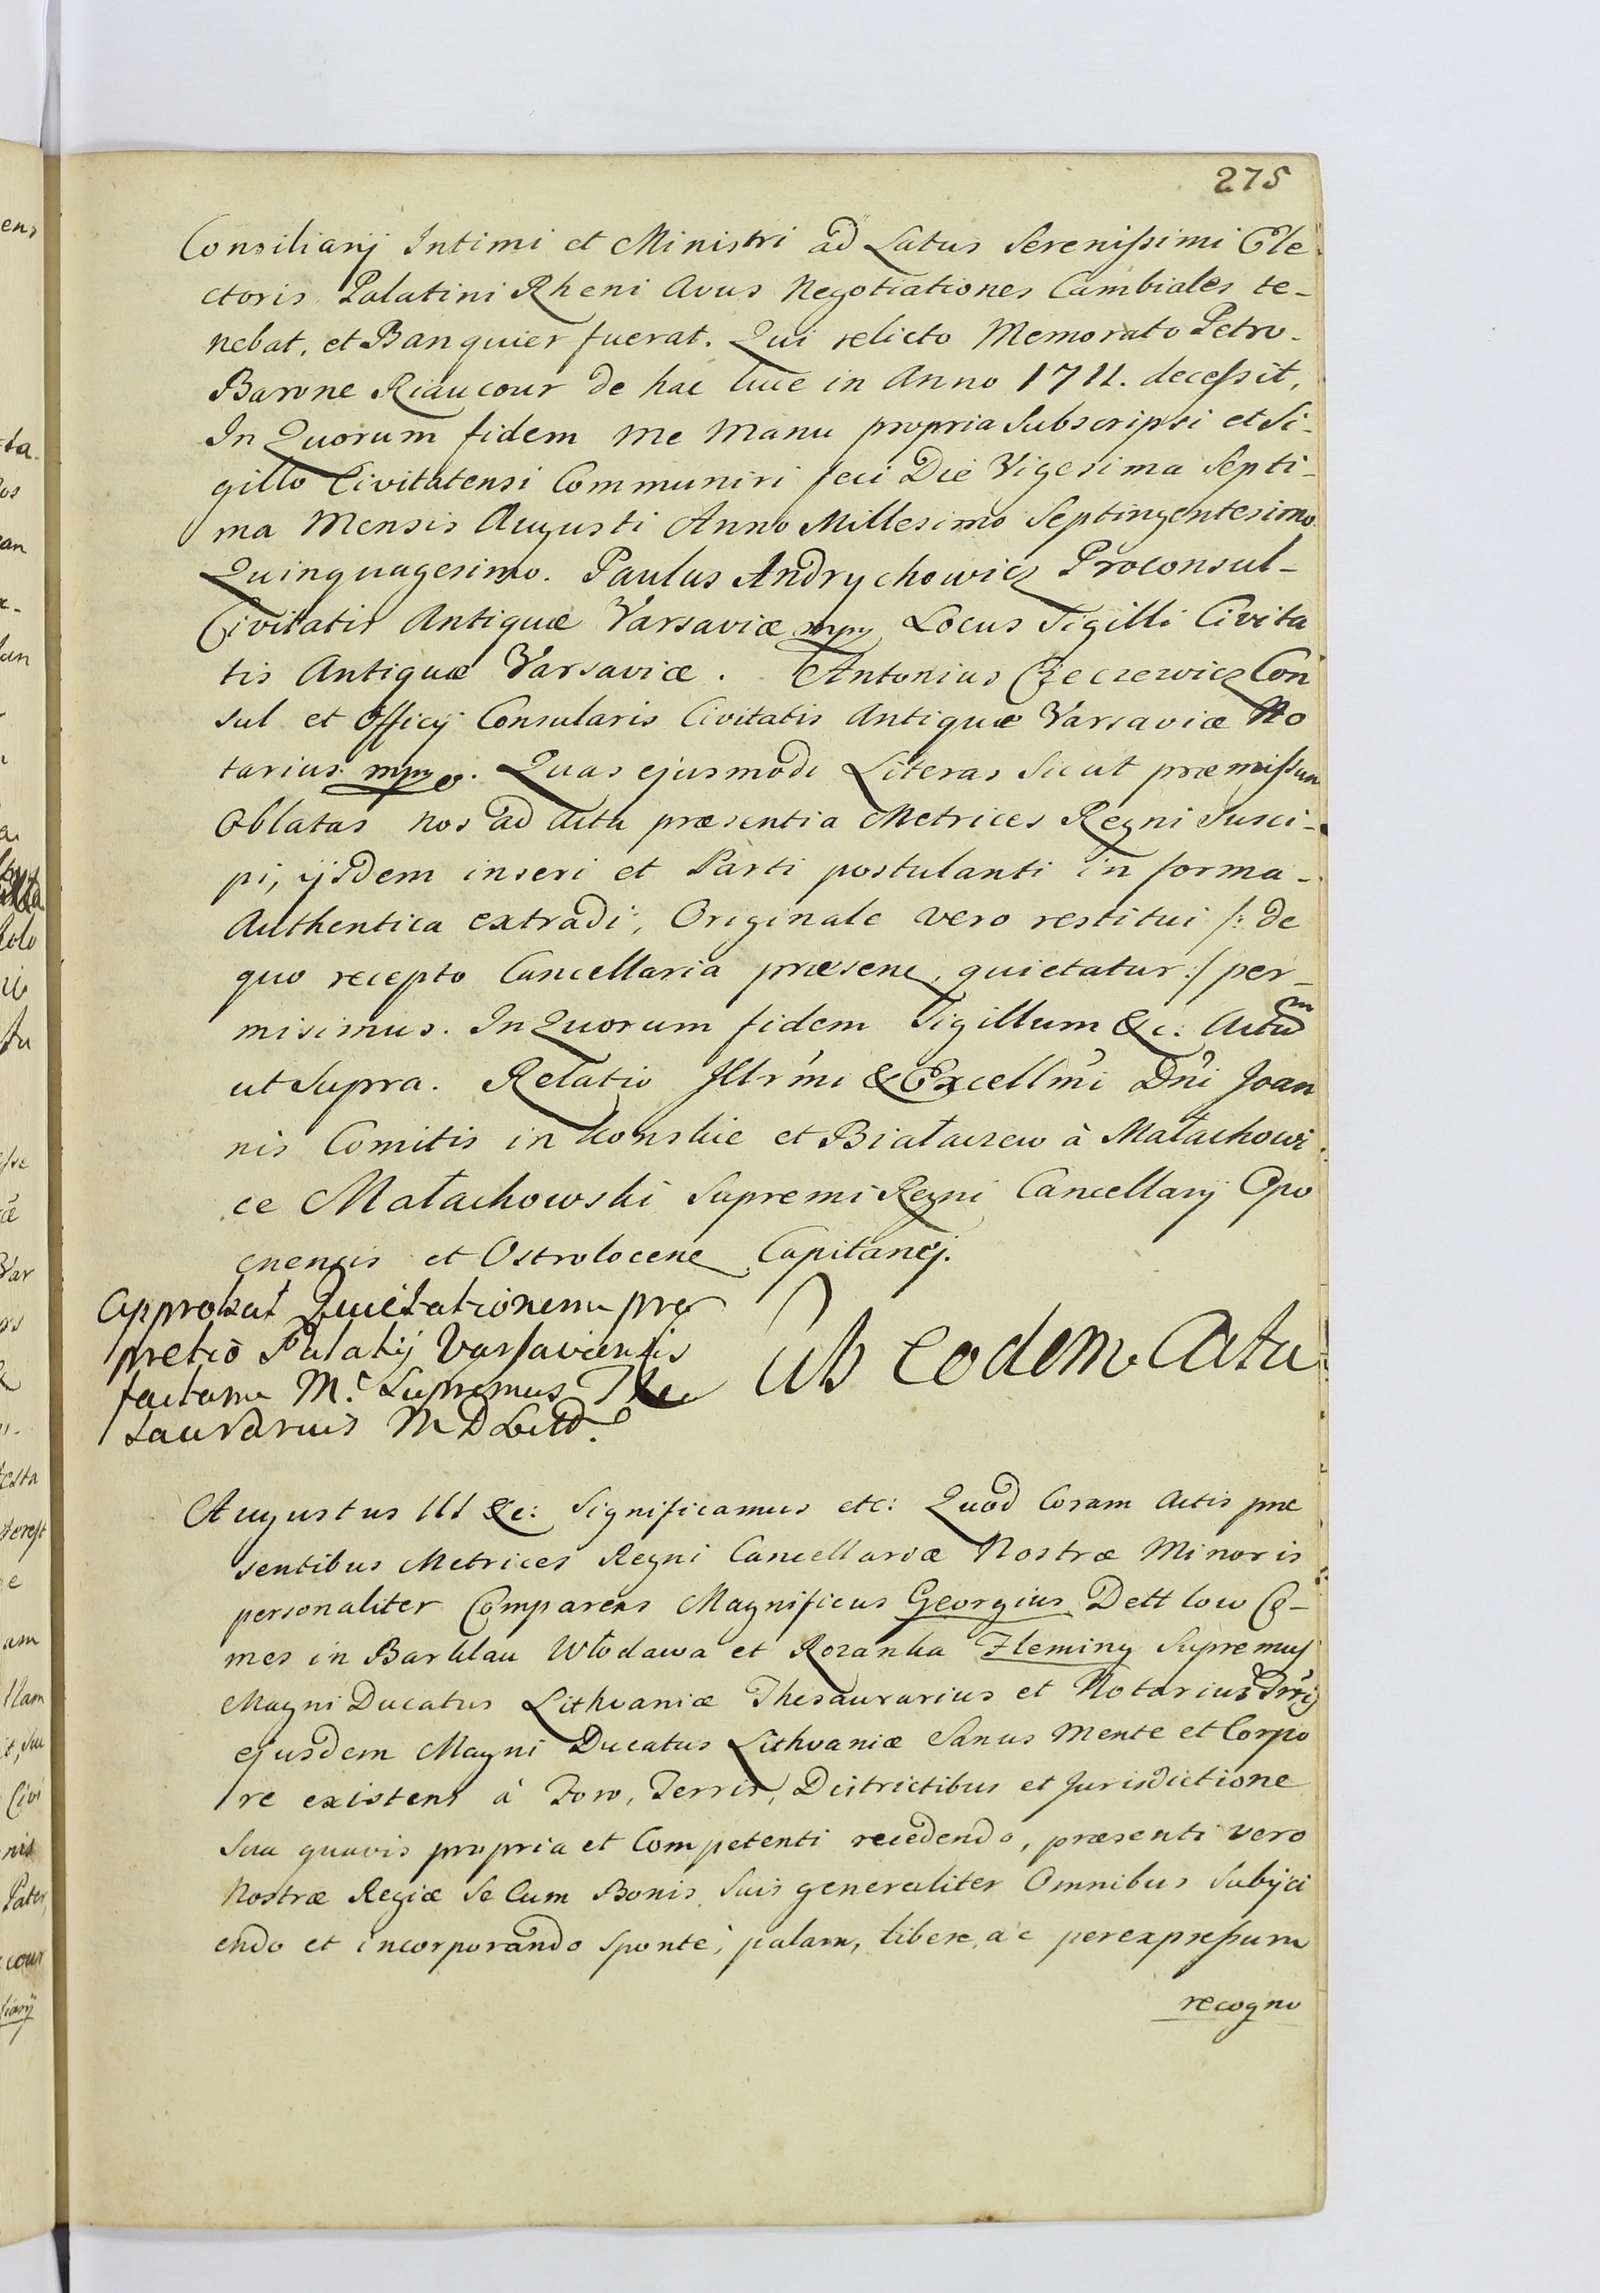 275
Consiliarij Intimi et Ministri ad Latus Serenissimi Ele-
ctoris Palatini Rheni Avus Negotiationes Cambiales te-
nebat, et Banquier fuerat. Qui relicto Memorato Petro
Barone Riaucour de hac luce in Anno 1711. decessit,
In Quorum fidem me manu propria Subscripsi et Si-
gillo Civitatensi Communiri feci Die Vigesima Septi-
ma Mensis Augusti Anno Millesimo Septingentesimo
Quinquagesimo. Paulus Andrychowicz Proconsul
Civitatis Antiquæ Varsaviæ mpp Locus Sigilli Civita
tis Antiquæ Varsaviæ. Antonius Czeczewicz Con
sul et Officij Consularis Civitatis Antiquæ Varsaviæ No
tarius mpp. Quas ejusmodi Literas Sicut præmissum
Oblatas nos ad Acta præsentia Metrices Regni Susci-
pi, ijsdem inseri et Parti postulanti in forma
Authentica extradi, Originale vero restitui /: de
quo recepto Cancellaria præsens quietatur :/ per-
misimus. In Quorum fidem Sigillum &c: Actum
ut Supra. Relatio Illrmi & Excellmi Dni Joan
nis Comitis in Konskie et Białaczew à Małachowi
ce Małachowski Supremi Regni Cancellarij Opo
cnensis et Ostrolecens Capitanej.
Approbat Quietationem pro
pretio Palatij Varsaviensis
factam M. Supremus The
saurarius M D Litt.
Sub eodem Actu
Augustus III &c: Significamus etc: Quod Coram Actis præ
sentibus Metrices Regni Cancellariæ Nostræ Minoris
personaliter Comparens Magnificus Georgius Dettlow Co-
mes in Barklau Włodawa et Rozanka Fleming Supremus
Magni Ducatus Lithvaniæ Thesaurarius et Notarius
ejusdem Magni Ducatus Lithvaniæ Sanus Mente et Corpo
re existens à Foro, Terris, Districtibus et Jurisdictione
Sua quavis propria et Competenti recedendo, præsenti vero
Nostræ Regiæ Se Cum Bonis Suis generaliter Omnibus Subijci
endo et incorporando sponte, palam, libere, ac per expressum
recogno